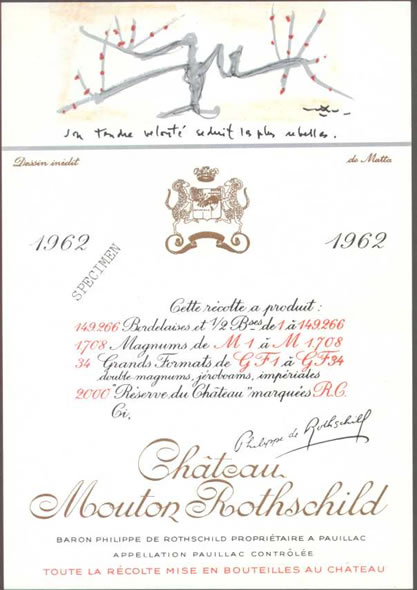 son tendre velouté séduit les plus rebelles.
Dessin inédit
de Matta
1962
1962
SPECIMEN
Cette récolte a produit :
149.266 Bordelaises et 1/2 Bses de 1 à 149.266
1708 Magnums de M 1 à M 1708
34 Grands Formats de G F 1 à G F 34
double magnums, jéroboams, impériales
2000 "Réserve du Château" marquées R.C.
Ci,
Philippe de Rothschild
Château
Mouton Rothschild
BARON PHILIPPE DE ROTHSCHILD PROPRIÉTAIRE A PAUILLAC
APPELLATION PAUILLAC CONTRÔLÉE
TOUTE LA RÉCOLTE MISE EN BOUTEILLES AU CHATEAU